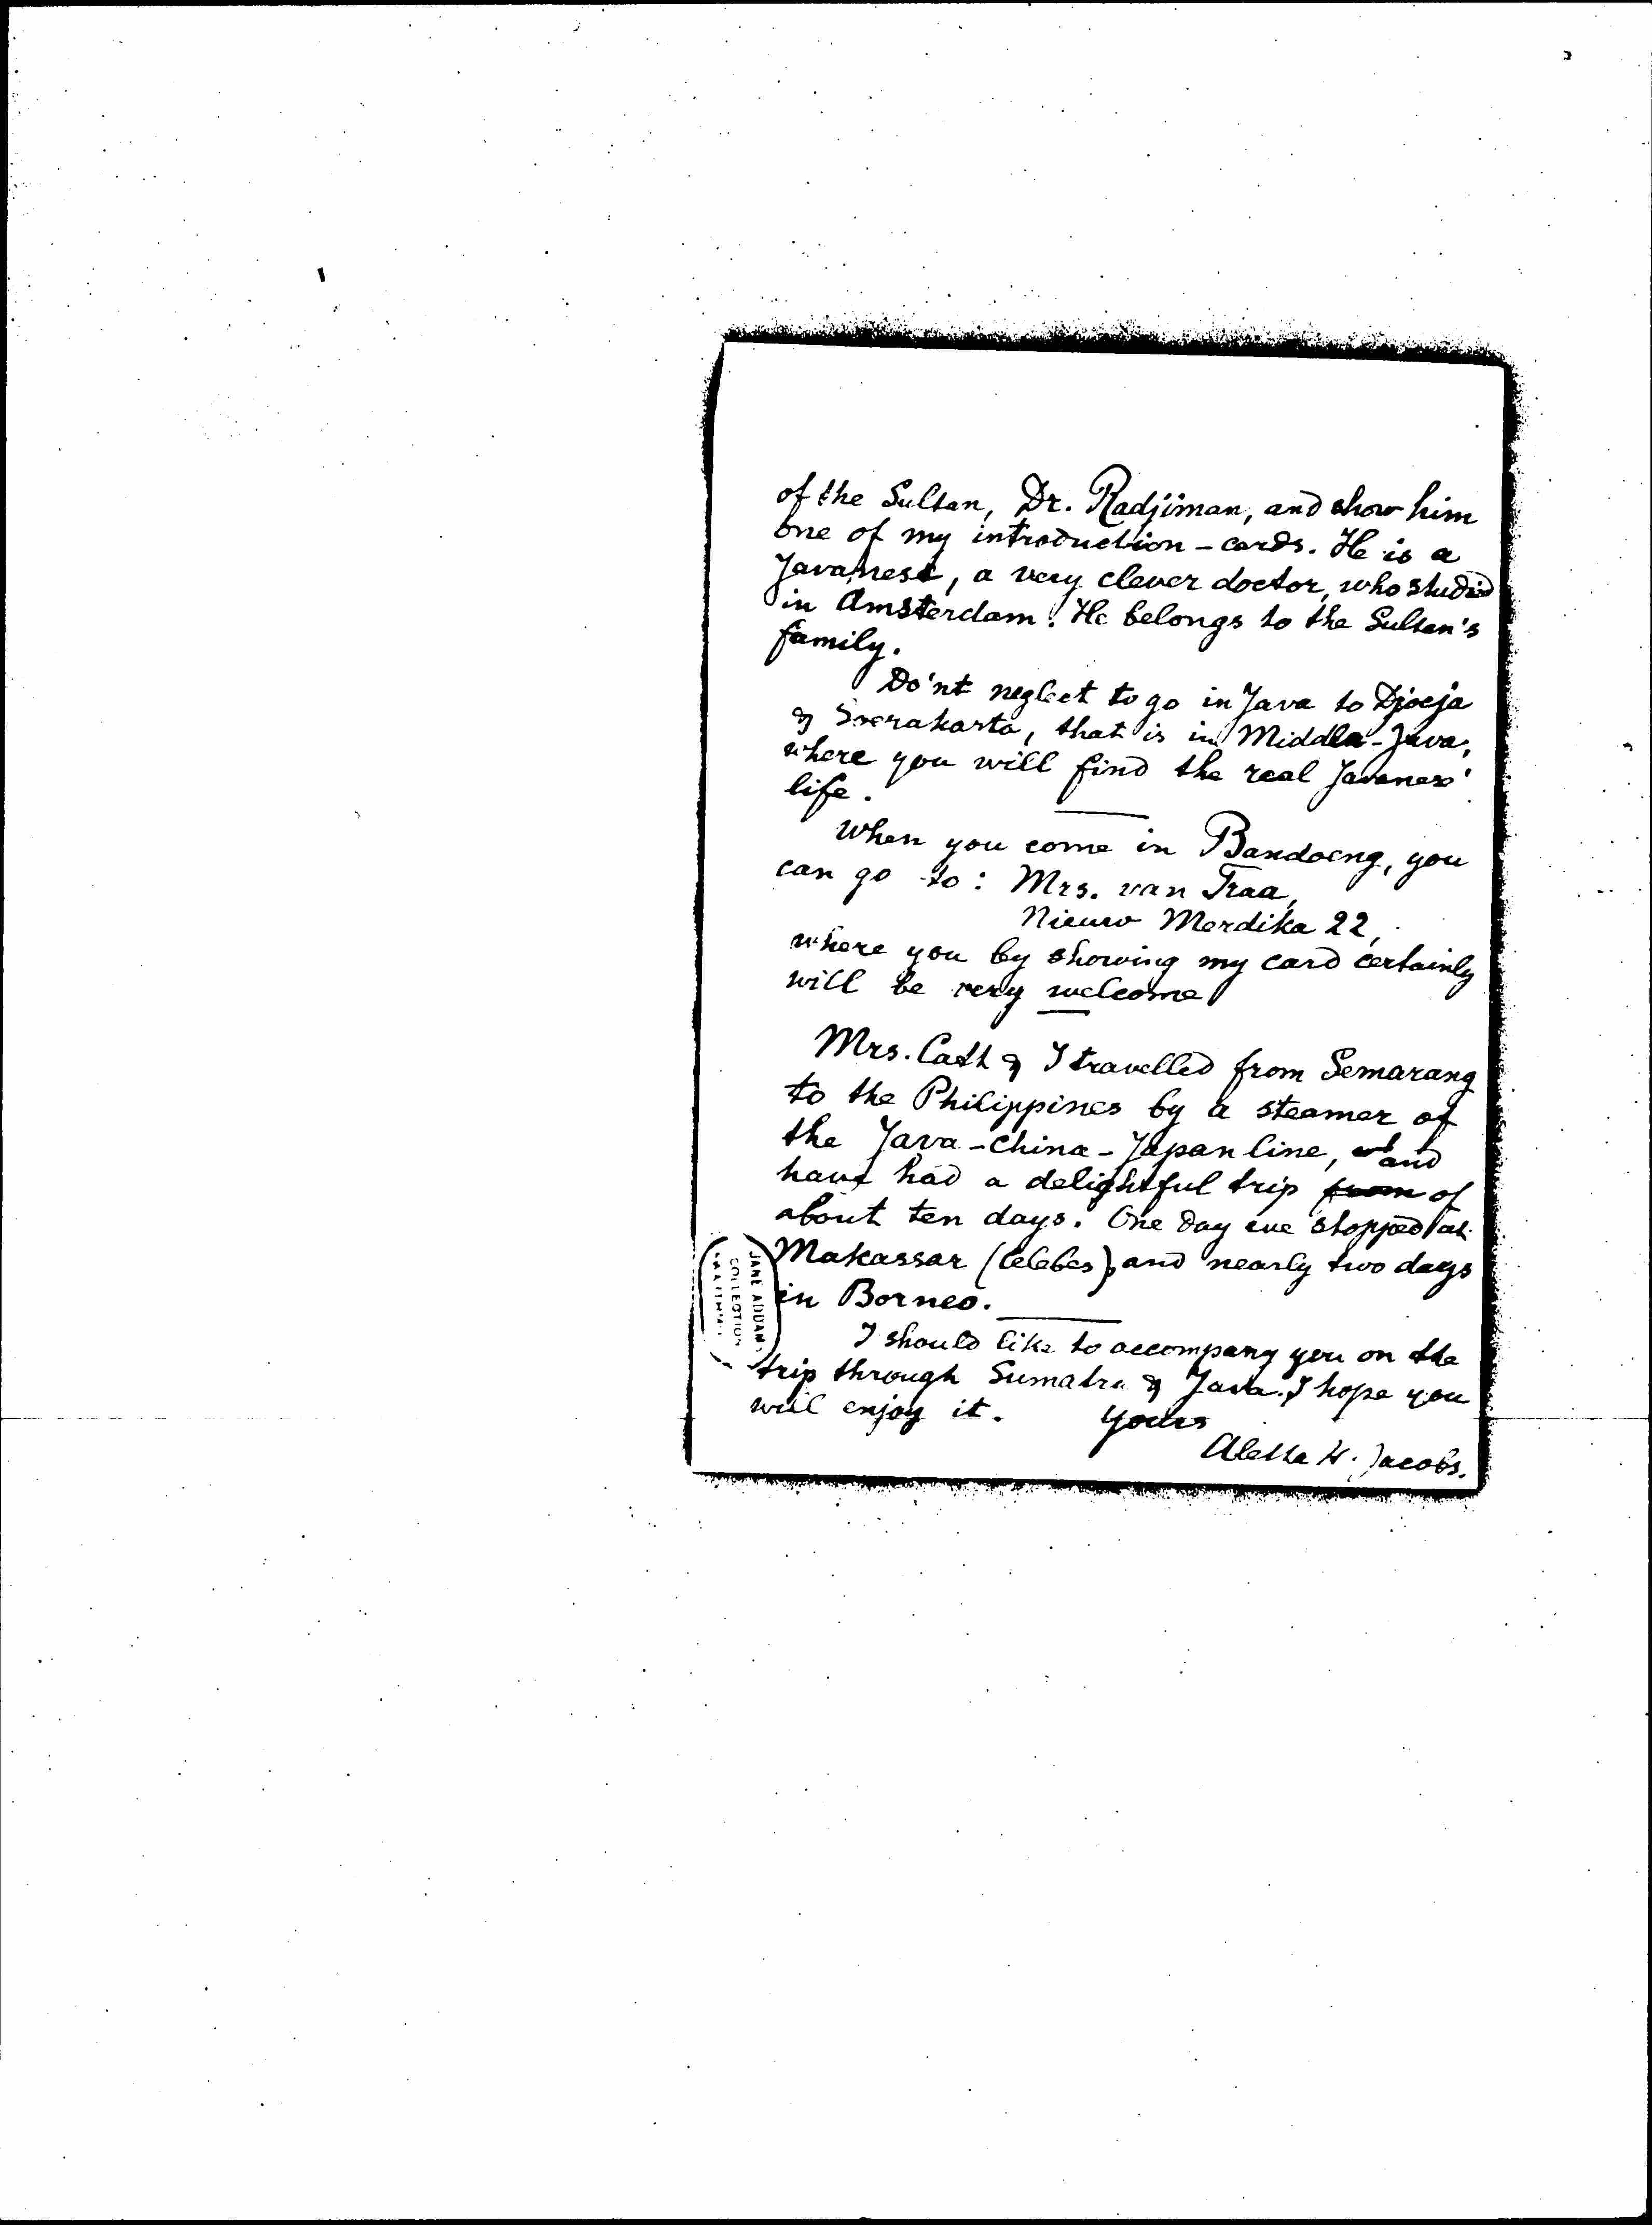 of the Sultan, Dr. Radjiman, and show him
one of my introduction - cards. He is a
Javanese, a very clever doctor, who studied
in Amsterdam. He belongs to the Sultan's
family.
Do'nt neglect to go in Java to Djocja
& Soerakarta, that is in Middle-Java,
where you will find the real Javanese
life.
When you come in Bandoeng, you
can go to: Mrs. van Traa,
Nieuw Merdika 22,
where you by showing my card certainly
will be very welcome
Mrs. Catt & I travelled from Semarang
to the Philippines by a steamer of
the Java-China-Japan line, and
have had a delightful trip from of
about ten days. One day we stopped at
Makassar (Celebes), and nearly two days
in Borneo.
I should like to accompany you on the
trip through Sumatra & Java. I hope you
will enjoy it. Yours
Aletta H. Jacobs.
JANE ADDAMS
COLLECTION